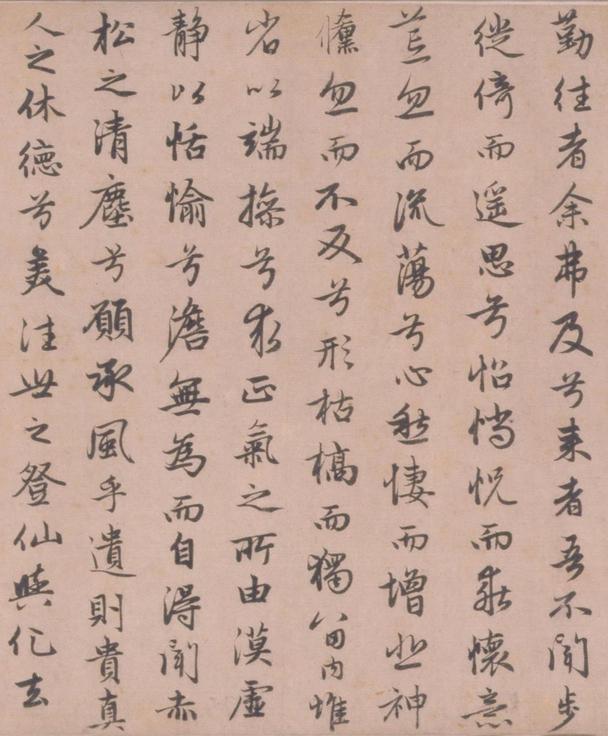 勤往者余弗及兮来者吾不聞步
徙倚而遥思兮怊惝怳而乖懷意
荒忽而流蕩兮心愁悽而增悲神
儵忽而不反兮形枯槁而獨留内惟
省以端操兮求正氣之所由漠虛
静以恬愉兮澹無為而自得聞赤
松之清塵兮願承風乎遺則貴真
人之休德兮美往世之登仙與化去